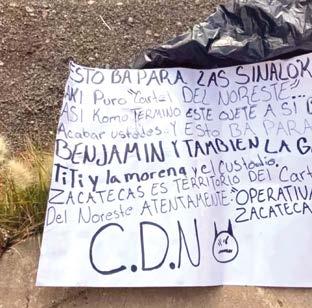 ESTO BA PARA LAS SINALOK
AKI PURO "CARTEL DEL NORESTE"...
ASI KOMO TERMINO ESTE OJETE A SI B
Acabar ustedes.. Y ESTO BA PARA
BENJAMIN Y TAMBIEN LA G
TiTi y la morena y el custodio.
ZACATECAS ES TERRITORIO DEL Cart
Del Noreste ATENTAMENTE: "OPERATIVA
ZACATECA
C.D.N